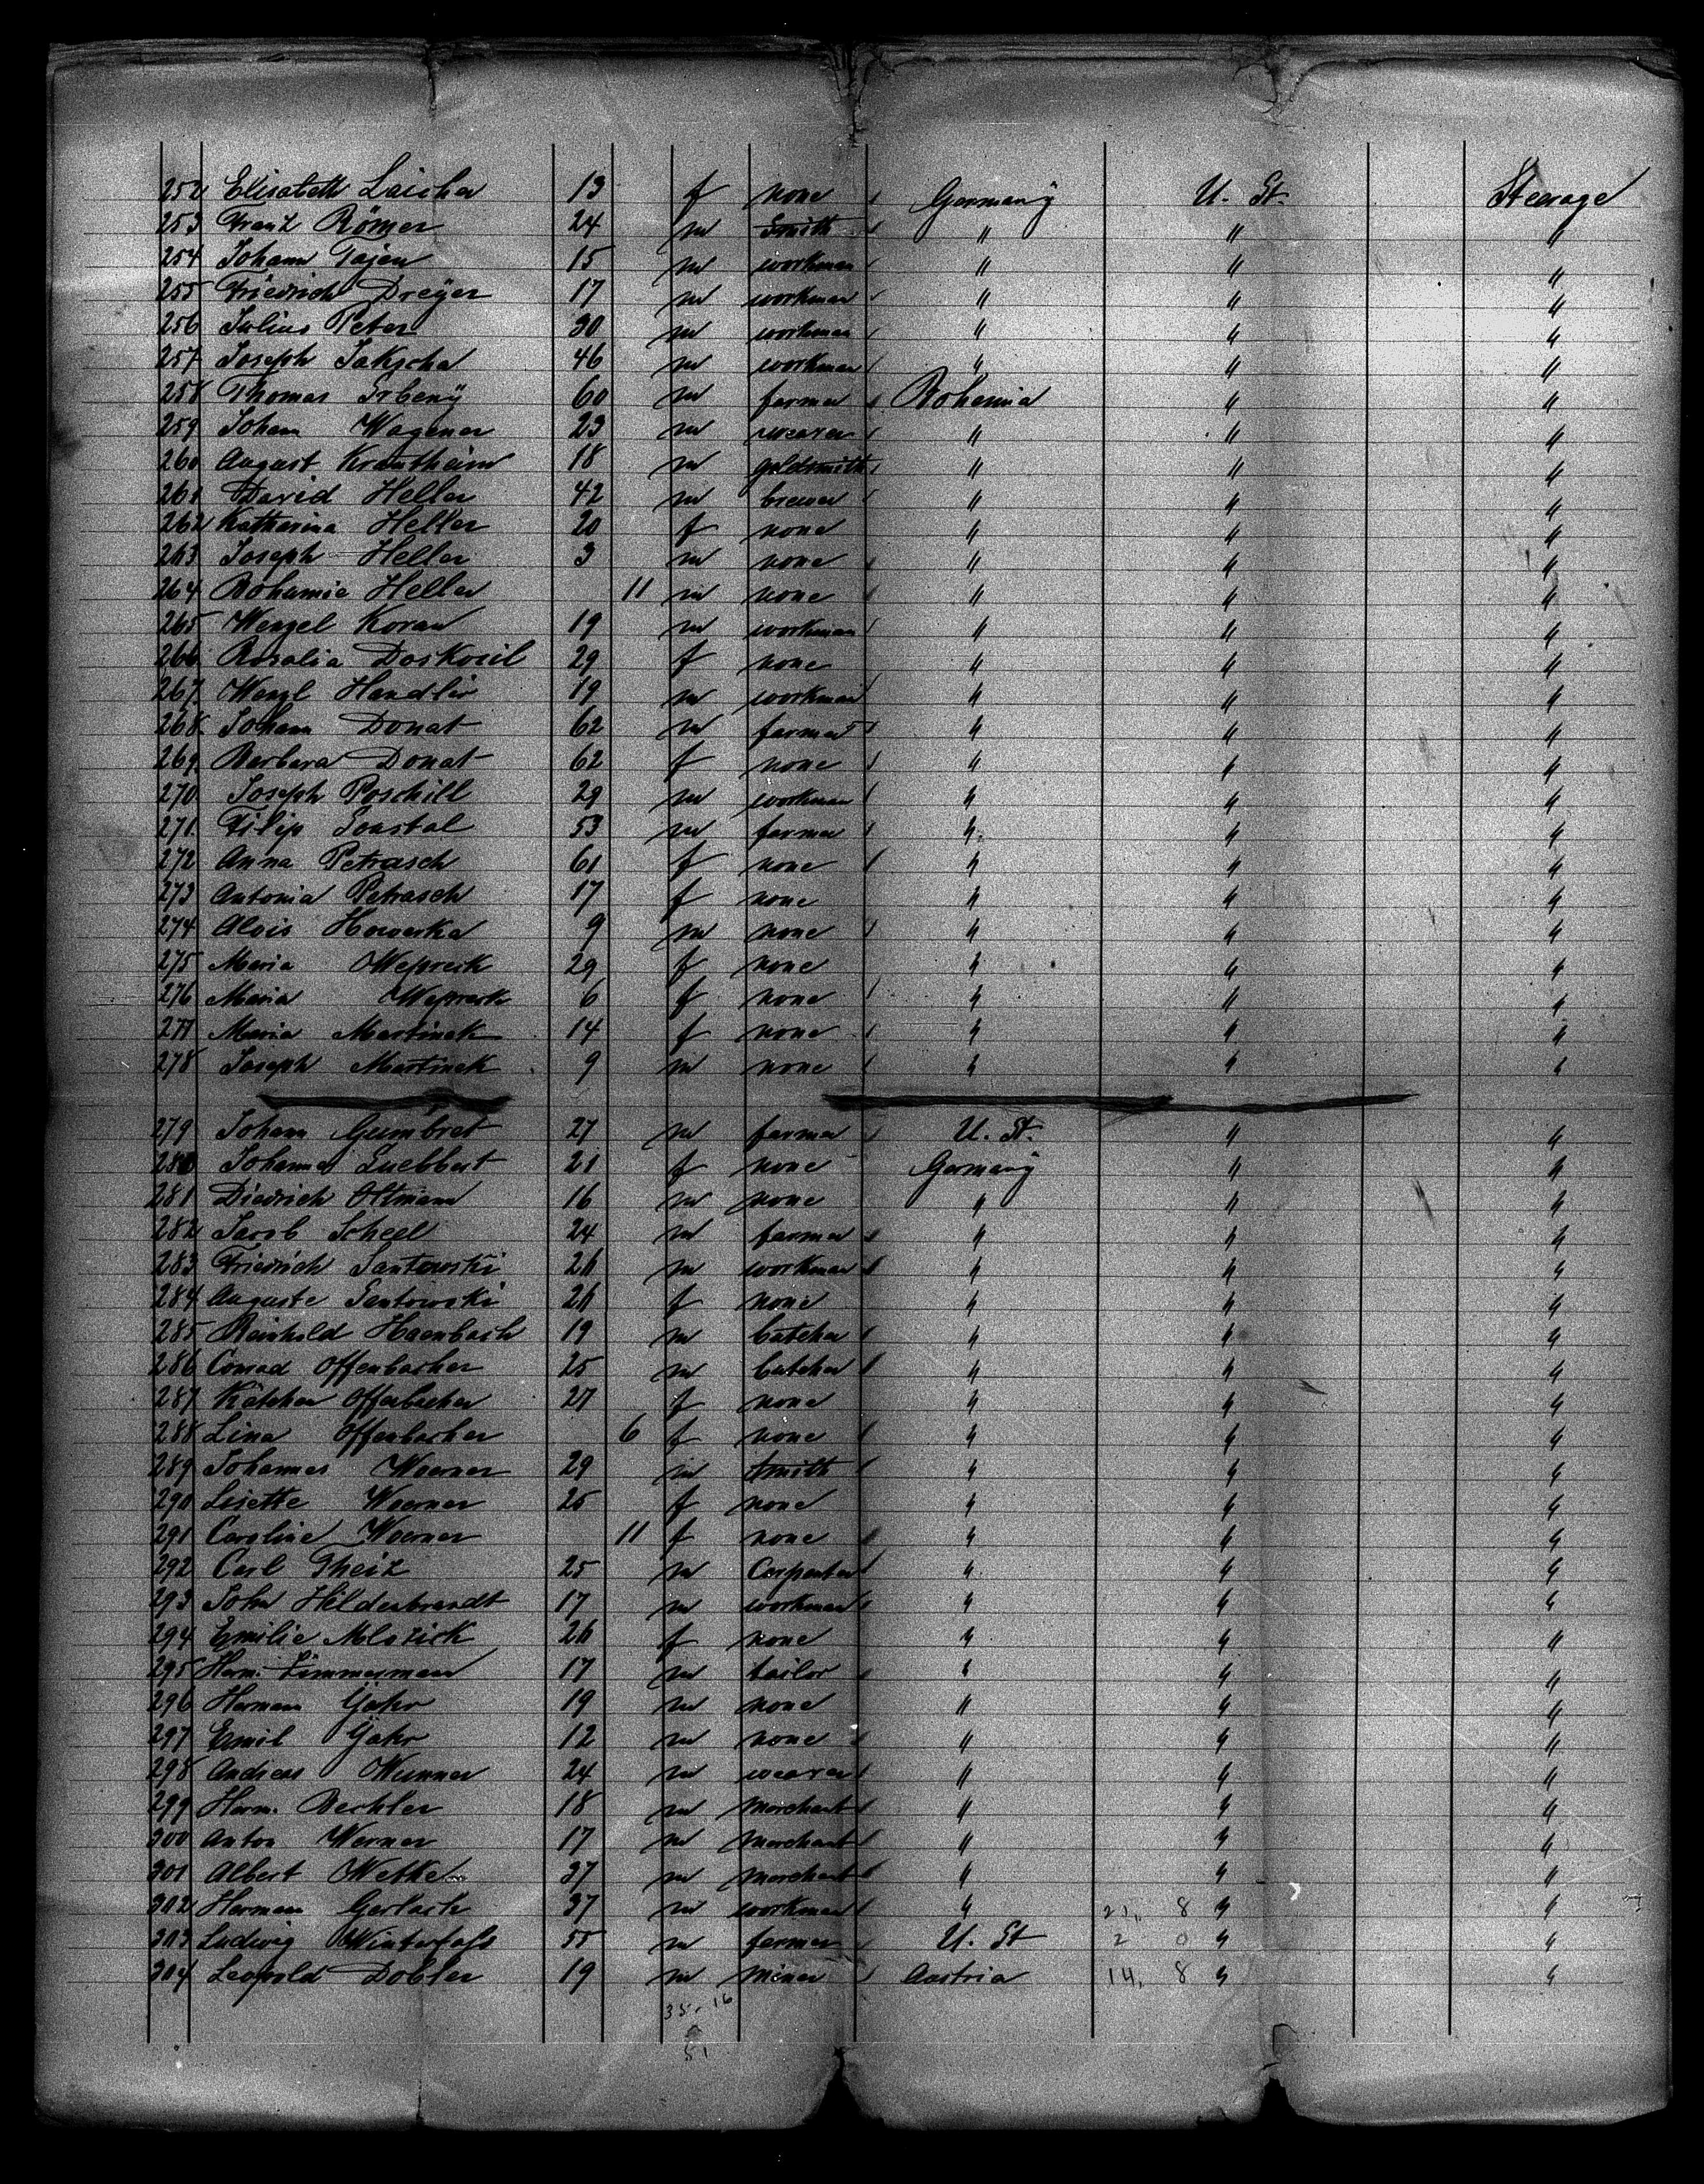 252 Elisabeth Laicha 13 f none Germany U. St. Steerage
253 Franz Römer 24 m Smith " " "
254 Johann Tajen 15 m workman " " "
255 Friedrich Dreÿer 17 m workman " " "
256 Julius Peter 30 m workman " " "
257 Joseph Jakscha 46 m workman " " "
258 Thomas Srbenÿ 60 m farmer Bohemia " "
259 Johann Wagener 23 m weaver " " "
260 August Krautheim 18 m goldsmith " " "
261 David Heller 42 m brewer " " "
262 Katherina Heller 20 f none " " "
263 Joseph Heller 3 m none " " "
264 Bohumie Heller 11 m none " " "
265 Wenzel Koran 19 m workman " " "
266 Rosalia Doskocil 29 f none " " "
267 Wenzl Handlir 19 m workman " " "
268 Johann Donat 62 m farmer " " "
269 Barbara Donat 62 f none " " "
270 Joseph Poschill 29 m workman " " "
271 Filip Soustal 53 m farmer " " "
272 Anna Petrasch 61 f none " " "
273 Antonia Petrasch 17 f none " " "
274 Alois Howerka 9 m none " " "
275 Maria 29 f none " " "
276 Maria 6 f none " " "
277 Maria Martinek 14 f none " " "
278 Joseph Martinek 9 m none " " "
279 Johann Gumbret 27 m farmer U. St. " "
280 Johanne Luebbert 21 f none Germanÿ " "
281 Diedrich Oltmann 16 m none " " "
282 Jacob Scheel 24 m farmer " " "
283 Friedrich Santowski 26 m workman " " "
284 Auguste Santowski 26 f none " " "
285 Reinhold Haenbach 19 m butcher " " "
286 Conrad Offenbacher 25 m butcher " " "
287 Kätchen Offenbacher 27 f none " " "
288 Lina Offenbacher 6 f none " " "
289 Johannes Woerner 29 m Smith " " "
290 Lisette Woerner 25 f none " " "
291 Caroline Woerner 11 f none " " "
292 Carl Theiz 25 m Carpenter " " "
293 John Hildenbrandt 17 m workman " " "
294 Emilie Mlozick 26 f none " " "
295 Herm. Zimmermann 17 m tailor " " "
296 Hermann Gjahr 19 m none " " "
297 Emil Gjahr 12 m none " " "
298 Andreas Wunner 24 m weaver " " "
299 Herm. Bechler 18 m merchant " " "
300 Anton Werner 17 m merchant " " "
301 Albert Wetke 37 m merchant " " "
302 Herman Gerlach 37 m workman " 21, 8 " "
303 Ludwig 55 m farmer U. St 2 0 " "
304 Leopold Dobler 19 m miner Austria 14, 8 " "
35, 16
51